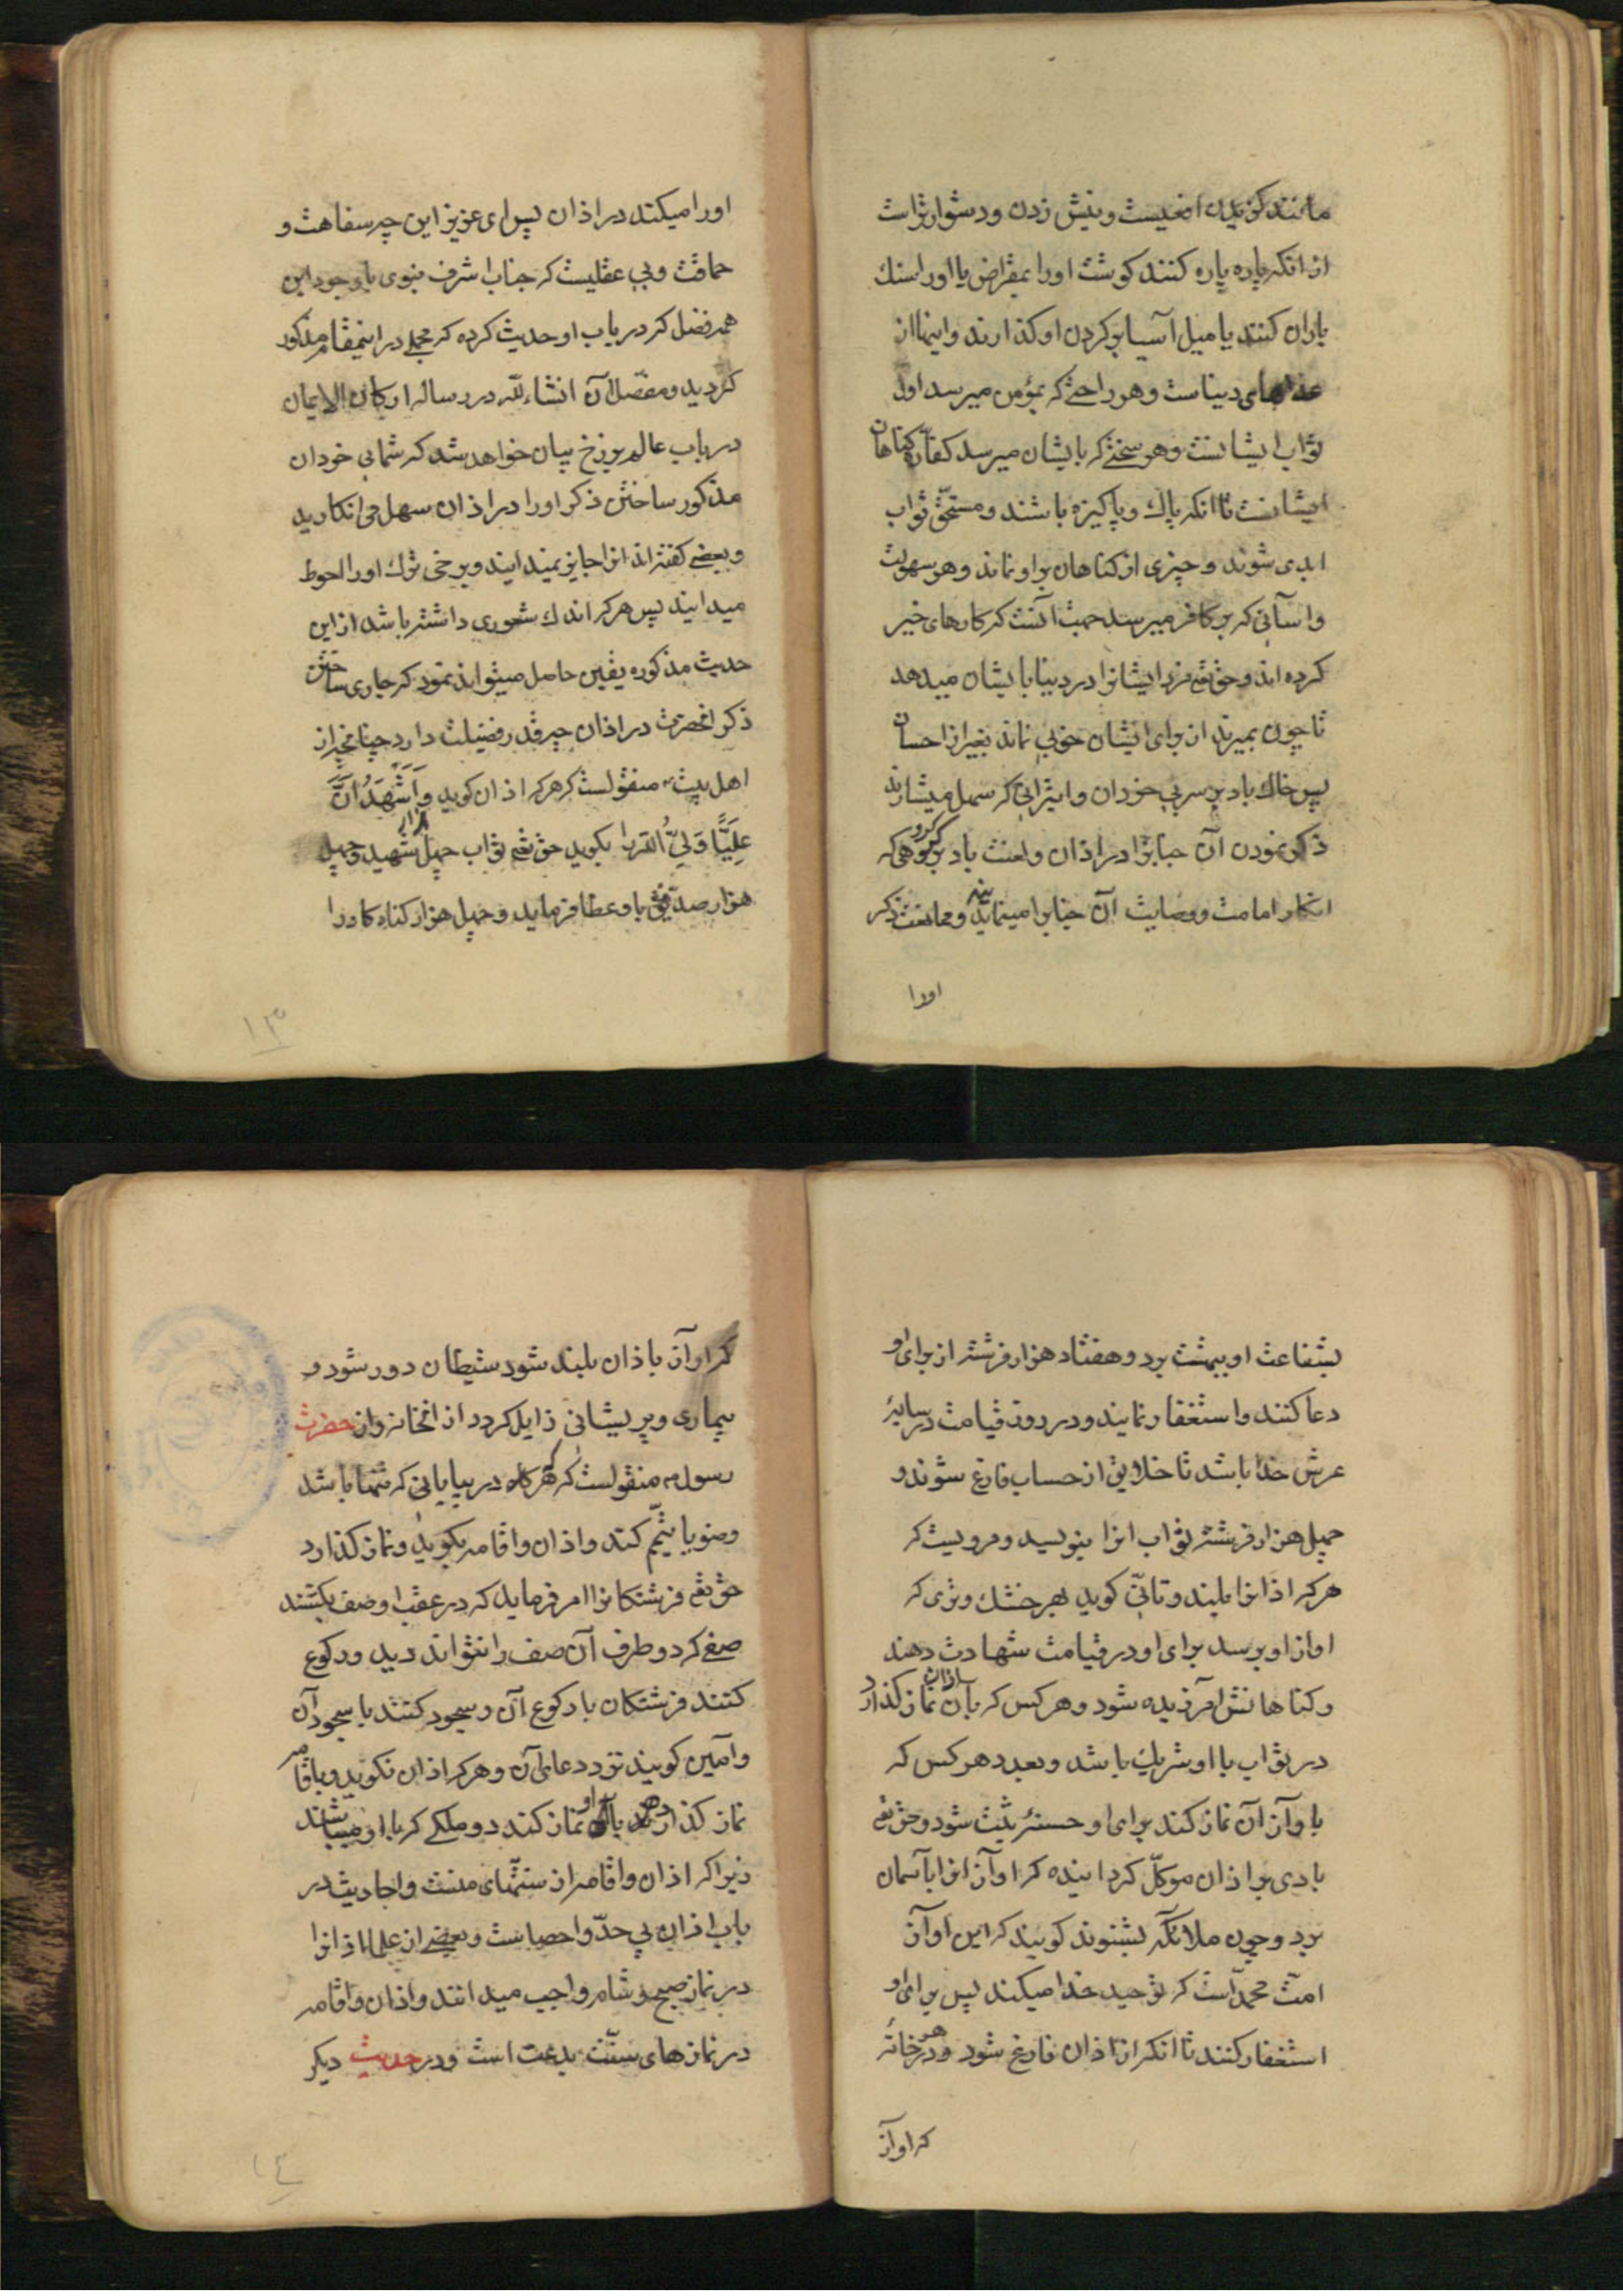 مانند کزیدن افعیست و نیش زدن و دشوارتراست
از انکه پاره پاره کنند کوشت اورا بمقراض یا اورا سنك
باران کنند یا میل آسیا بر کردن او کذارند و اینها از
عذابهای دنیاست و هر راحتی که بمؤمن میرسد اول
ثواب ایشانست و هر سختی که بایشان میرسد کفارّه کناهان
ایشانست تا انکه پاك و پاکیزه باشند و مستحّق ثواب
ابدی شوند و چیزی از کناهان بر او نماند و هر سهولت
و آسانی که بر کافر میرسد جهت آنست که کارهای خیر
کرده اند و حق تع مزد ایشانرا در دنیا بایشان میدهد
تا چون بمیرند از برای ایشان خوبی نماند بغیر از احسان
پس خاك باد بر سر بی خردان و ابترانی که سهل میشمارند
ذکر نمودن آن جنابرا در اذان و لعنت باد بر کروهی که
انکار امامت و وصایت آن جنابرا مینمایند و ممانعت ذکر
اورا
اورا میکند در اذان پس ای عزیز این چه سفاهت و
حماقت و بی عقلیست که جناب اشرف نبوی با وجود این
همه فضل که در باب او حدیث کرده که مجملی در اینمقام مذکور
کردید و مفصّل آن انشاءلله در رساله ارکان الایمان
در باب عالم برزخ بیان خواهد شد که شما بی خردان
مذکور ساختن ذکر اورا در اذان سهل می انکارید
و بعضی کفته اند انرا جایز نمیدانند و برخی ترك اورا احوط
میدانند پس هر که اندك شعوری داشته باشد از این
حدیث مذکوره یقین حاصل میتواند نمود که جاری ساختن
ذکر انحضرت در اذان چه قدر فضیلت دارد چنانچه از
اهل بیت ع منقولست که هر که اذان کوید و اَشْهَدُ اَنَّ
عَلِیًّا وَلِیُّ الله را بکوید حق تع ثواب چهل هزار شهید و چهل
هزار صدّیق باو عطا فرماید و چهل هزار کناه کار را
۱۳
بشفاعت او ببهشت برد و هفتاد هزار فرشته از برای او
دعا کنند و استغفار نمایند و در روز قیامت در سایهٔ
عرش خدا باشد تا خلایق از حساب فارغ شوند و
چهل هزار فرشته ثواب انرا بنویسند و مرویست که
هر که اذانرا بلند و تأنّی کوید هر خشك و تری که
اواز او برسد برای او در قیامت شهادت دهند
و کناهانش آمرزیده شود و هر کس که بان اذان نماز کذارد
در ثواب با او شریك باشد و بعدد هر کس که
باواز آن نماز کند برای او حسنهٔ ثبت شود و حق تع
بادی بر اذان موکّل کردانیده که اواز انرا بآسمان
برد و چون ملائکه بشنوند کویند که این اواز
امّت محمّد است که توحید خدا میکند پس برای او
استغفار کنند تا انکه از اذان فارغ شود و در هر خانه
که اواز
که اواز باذان بلند شود شیطان دور شود و
بیماری و پریشانی زایل کردد از انخانه و از حضرت
رسول ص منقولست که هرکاه در بیابانی که تنها باشد
وضو یا تیمّم کند و اذان و اقامه بکوید و نماز کذارد
حق تع فرشتکانرا امر فرماید که در عقب او صف بکشند
صفی که دو طرف آن صف را نتواند دید و رکوع
کنند فرشتکان با رکوع آن و سجود کنند با سجود آن
و آمین کویند نزد دعای آن و هر که اذان نکوید و باقامه
نماز کذارد با او نماز کنند دو ملکی که با او میباشند
زیرا که اذان و اقامه از سنّتهای منست و احادیث در
باب اذان بی حدّ و احصاست و بعضی از علما اذانرا
در نماز صبح و شام واجب میدانند و اذان و اقامه
در نمازهای سنّت بدعت است و در حدیث دیکر
۱۴